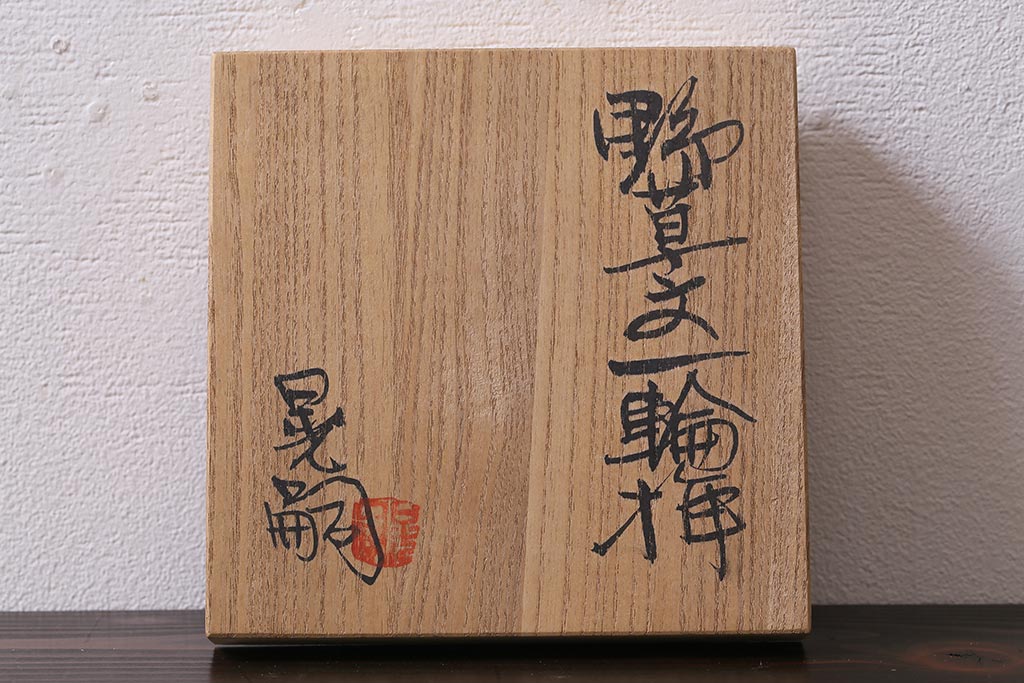 野草文一輪挿
晃嗣